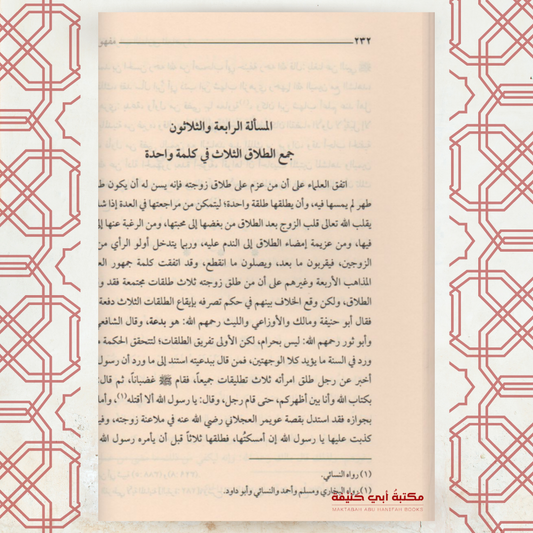 ٢٣٢
المسألة الرابعة والثلاثون
جمع الطلاق الثلاث في كلمة واحدة
اتفق العلماء على أن من عزم على طلاق زوجته فإنه يسن له أن يكون
طهر لم يمسها فيه، وأن يطلقها طلقة واحدة؛ ليتمكن من مراجعتها في العدة إذا
يقلب الله تعالى قلب الزوج بعد الطلاق من بغضها إلى محبتها، ومن الرغبة عنها
فيها، ومن عزيمة إمضاء الطلاق إلى الندم عليه، وربما يتدخل أولو الرأي من
الزوجين، فيقربون ما بعد، ويصلون ما انقطع، وقد اتفقت كلمة جمهور
المذاهب الأربعة وغيرهم على أن من طلق زوجته ثلاث طلقات مجتمعة فقد
الطلاق، ولكن وقع الخلاف بينهم في حكم تصرفه بإيقاع الطلقات الثلاث دفعة
فقال أبو حنيفة ومالك والأوزاعي والليث رحمهم الله: هو بدعة، وقال الشافعي
وأبو ثور رحمهم الله: ليس بحرام، لكن الأولى تفريق الطلقات؛ لتتحقق الحكمة
ورد في السنة ما يؤيد كلا الوجهتين، فمن قال ببدعيته استند إلى ما ورد أن رسول
أخبر عن رجل طلق امرأته ثلاث تطليقات جميعاً، فقام ﷺ غضباناً، ثم قال:
بكتاب الله وأنا بين أظهركم، حتى قام رجل، وقال: يا رسول الله ألا أقتله(١)، وأما
بجوازه فقد استدل بقصة عويمر العجلاني رضي الله عنه في ملاعنة زوجته،
كذبت عليها يا رسول الله إن أمسكتُها، فطلقها ثلاثاً قبل أن يأمره رسول الله
(١) رواه النسائي.
(١) رواه البخاري ومسلم وأحمد والنسائي وأبو داود.
مكتبة أبي حنيفة
MAKTABAH ABU HANEFAH BOOKS